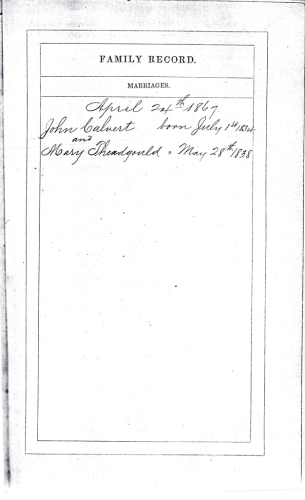 FAMILY RECORD.
MARRIAGES.
April 24th 1867.
John Calvert born July 1st
and
Mary Theadgould " May 28th 1838